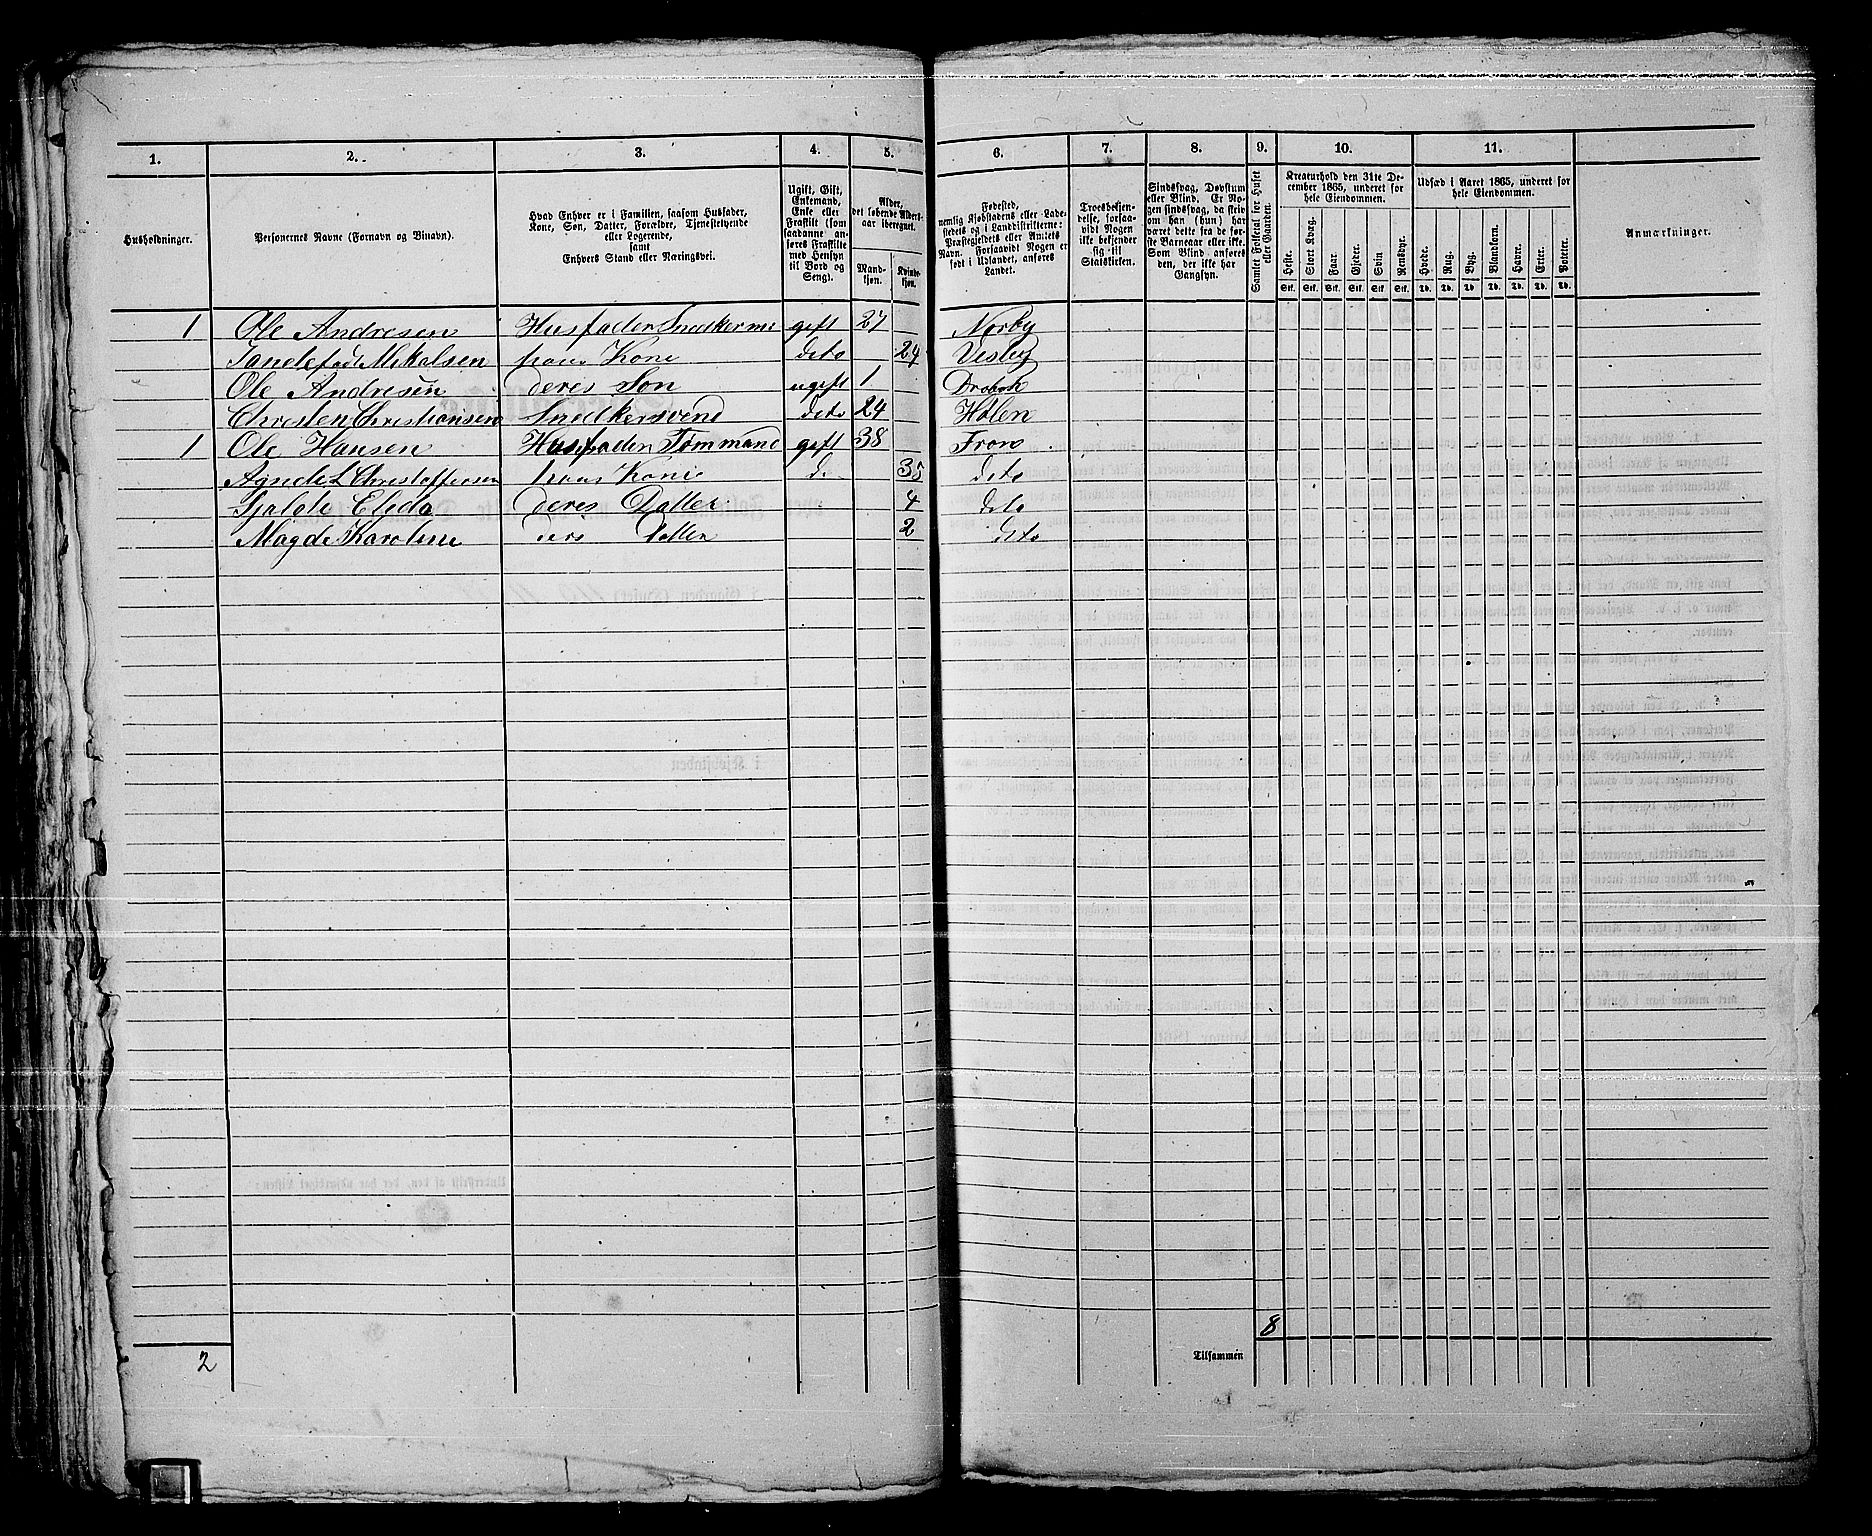 1. 2. 3. 4. 5. 6. 7. 8. 9. 10. 11.
Husholdninger.
Personernes Navne (Fornavn og Binavn).
Hvad Enhver er i Familien, saasom Husfader,
Kone, Søn, Datter, Forældre, Tjenestetyende
eller Logerende,
samt
Enhvers Stand eller Næringsvei.
Ugift, Gift,
Enkemand,
Enke eller
Fraskilt (som
saadanne an-
føres Fraskilte
med Hensyn
til Bord og
Seng).
Alder,
det løbende Alders-
aar iberegnet.
Mand-
kjøn.
Kvinde-
kjøn.
Fødested,
nemlig Kjøbstadens eller Lade-
stedets og i Landdistrikterne:
Præstegjeldets eller Amtets
Navn. Forsaavidt Nogen er
født i Udlandet, anføres
Landet.
Troesbekjen-
delse, forsaa-
vidt Nogen
ikke bekjender
sig til
Statskirken.
Sindssvag, Døvstum
eller Blind. Er No-
gen sindssvag, da skriv
om han (hun) har
været dette fra de før-
ste Barneaar eller ikke.
Som Blind anføres
den, der ikke har
Gangsyn.
Samlet Folketal for Huset
eller Gaarden.
Kreaturhold den 31te De-
cember 1865, underet for
hele Eiendommen.
Heste. Stort Kvæg. Faar. Gjeder. Svin Rensdyr.
Stk. Stk. Stk. Stk. Stk. Stk.
Udsæd i Aaret 1865, underet for
hele Eiendommen.
Hvede. Rug. Byg. Blandkorn. Havre. Erter. Poteter.
Td. Td. Td. Td. Td. Td. Td.
Anmærkninger.
1 Ole Andresen Husfader Snedkerme gift 27 Norby
Mikalsen hans Kone deto 24 Vesby
Ole Andresen deres Søn ugift 1 Drøbak
Christen Christiansen Snedkersvend deto 24 Hølen
1 Ole Hansen Husfader Tømmand gift 38 Fron
Christoffersen hans Kone d 35 deto
Elida deres Datter 4 deto
Magde Karoline deres Datter 2 deto
8
2
Tilsammen